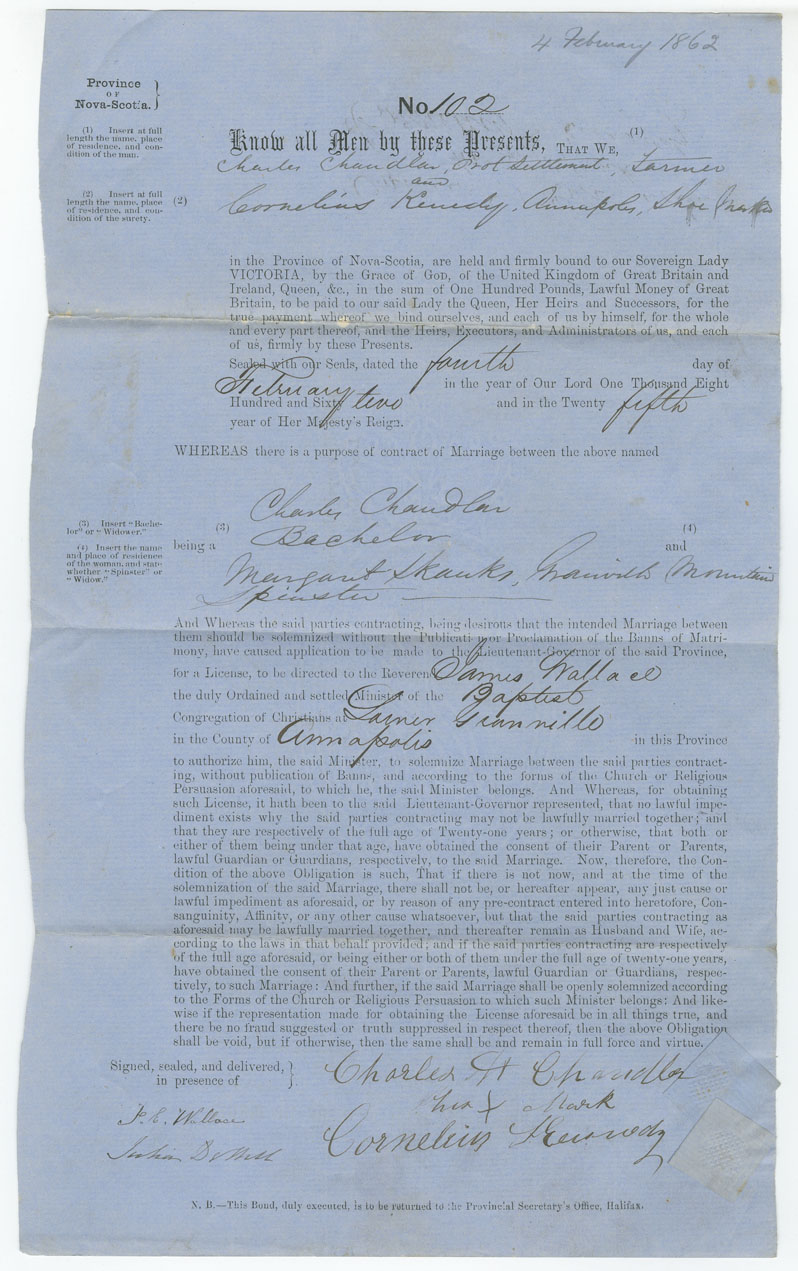 4 February 1862
Province
OF
Nova-Scotia.
No. 102
(1) Insert at full
length the name, place
of residence, and con-
dition of the man.
Know all Men by these Presents, THAT WE, (1)
Charles Chandler, Settlement, Farmer
and
(2) Insert at full
length the name, place
of residence, and con-
dition of the surety.
(2) Cornelius Kenedy, Annapolis, Shoe Maker
in the Province of Nova-Scotia, are held and firmly bound to our Sovereign Lady
VICTORIA, by the Grace of GOD, of the United Kingdom of Great Britain and
Ireland, Queen, &c., in the sum of One Hundred Pounds, Lawful Money of Great
Britain, to be paid to our said Lady the Queen, Her Heirs and Successors, for the
true payment whereof we bind ourselves, and each of us by himself, for the whole
and every part thereof, and the Heirs, Executors, and Administrators of us, and each
of us, firmly by these Presents.
Sealed with our Seals, dated the fourth day of
February in the year of Our Lord One Thousand Eight
Hundred and Sixty two and in the Twenty fifth
year of Her Majesty's Reign.
WHEREAS there is a purpose of contract of Marriage between the above named
Charles Chandler
(3) Insert "Bache-
lor" or "Widower."
(4) Insert the name
and place of residence
of the woman, and state
whether "Spinster" or
"Widow."
being a (3) Bachelor and (4)
Margaret Skanks, Mountain
Spinster
And Whereas the said parties contracting, being desirous that the intended Marriage between
them should be solemnized without the Publication or Proclamation of the Banns of Matri-
mony, have caused application to be made to the Lieutenant-Governor of the said Province,
for a License, to be directed to the Reverend James Wallace
the duly Ordained and settled Minister of the Baptist
Congregation of Christians at Lower Granville
in the County of Annapolis in this Province
to authorize him, the said Minister, to solemnize Marriage between the said parties contract-
ing, without publication of Banns, and according to the forms of the Church or Religious
Persuasion aforesaid, to which he, the said Minister belongs. And Whereas, for obtaining
such License, it hath been to the said Lieutenant-Governor represented, that no lawful impe-
diment exists why the said parties contracting may not be lawfully married together; and
that they are respectively of the full age of Twenty-one years; or otherwise, that both or
either of them being under that age, have obtained the consent of their Parent or Parents,
lawful Guardian or Guardians, respectively, to the said Marriage. Now, therefore, the Con-
dition of the above Obligation is such, That if there is not now, and at the time of the
solemnization of the said Marriage, there shall not be, or hereafter appear, any just cause or
lawful impediment as aforesaid, or by reason of any pre-contract entered into heretofore, Con-
sanguinity, Affinity, or any other cause whatsoever, but that the said parties contracting as
aforesaid may be lawfully married together, and thereafter remain as Husband and Wife, ac-
cording to the laws in that behalf provided; and if the said parties contracting are respectively
of the full age aforesaid, or being either or both of them under the full age of twenty-one years,
have obtained the consent of their Parent or Parents, lawful Guardian or Guardians, respec-
tively, to such Marriage: And further, if the said Marriage shall be openly solemnized according
to the Forms of the Church or Religious Persuasion to which such Minister belongs: And like-
wise if the representation made for obtaining the License aforesaid be in all things true, and
there be no fraud suggested or truth suppressed in respect thereof, then the above Obligation
shall be void, but if otherwise, then the same shall be and remain in full force and virtue.
Signed, sealed, and delivered,
in presence of
Charles H Chandler
his X Mark
Wallace
Cornelius Kennedy
N. B.—This Bond, duly executed, is to be returned to the Provincial Secretary's Office, Halifax.